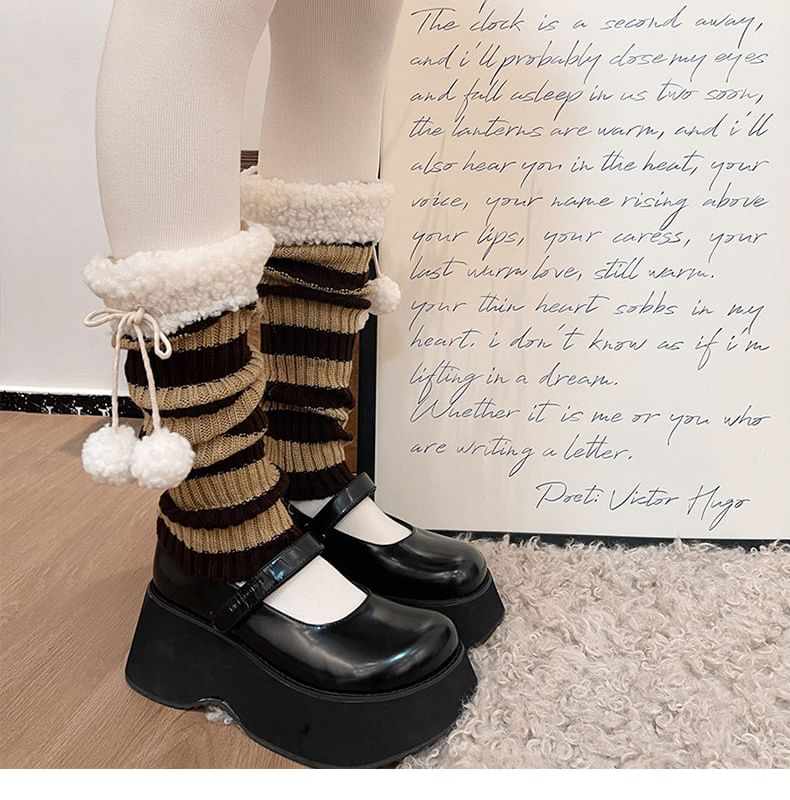 The clock is a second away,
and i'll probably close my eyes
and fall asleep in us two soon,
the lanterns are warm, and i'll
also hear you in the heat, your
voice, your name rising above
your lips, your caress, your
last warm love, still warm.
your thin heart sobbs in my
heart. i don't know as if i'm
lifting in a dream.
Whether it is me or you who
are writing a letter.
Poet: Victor Hugo